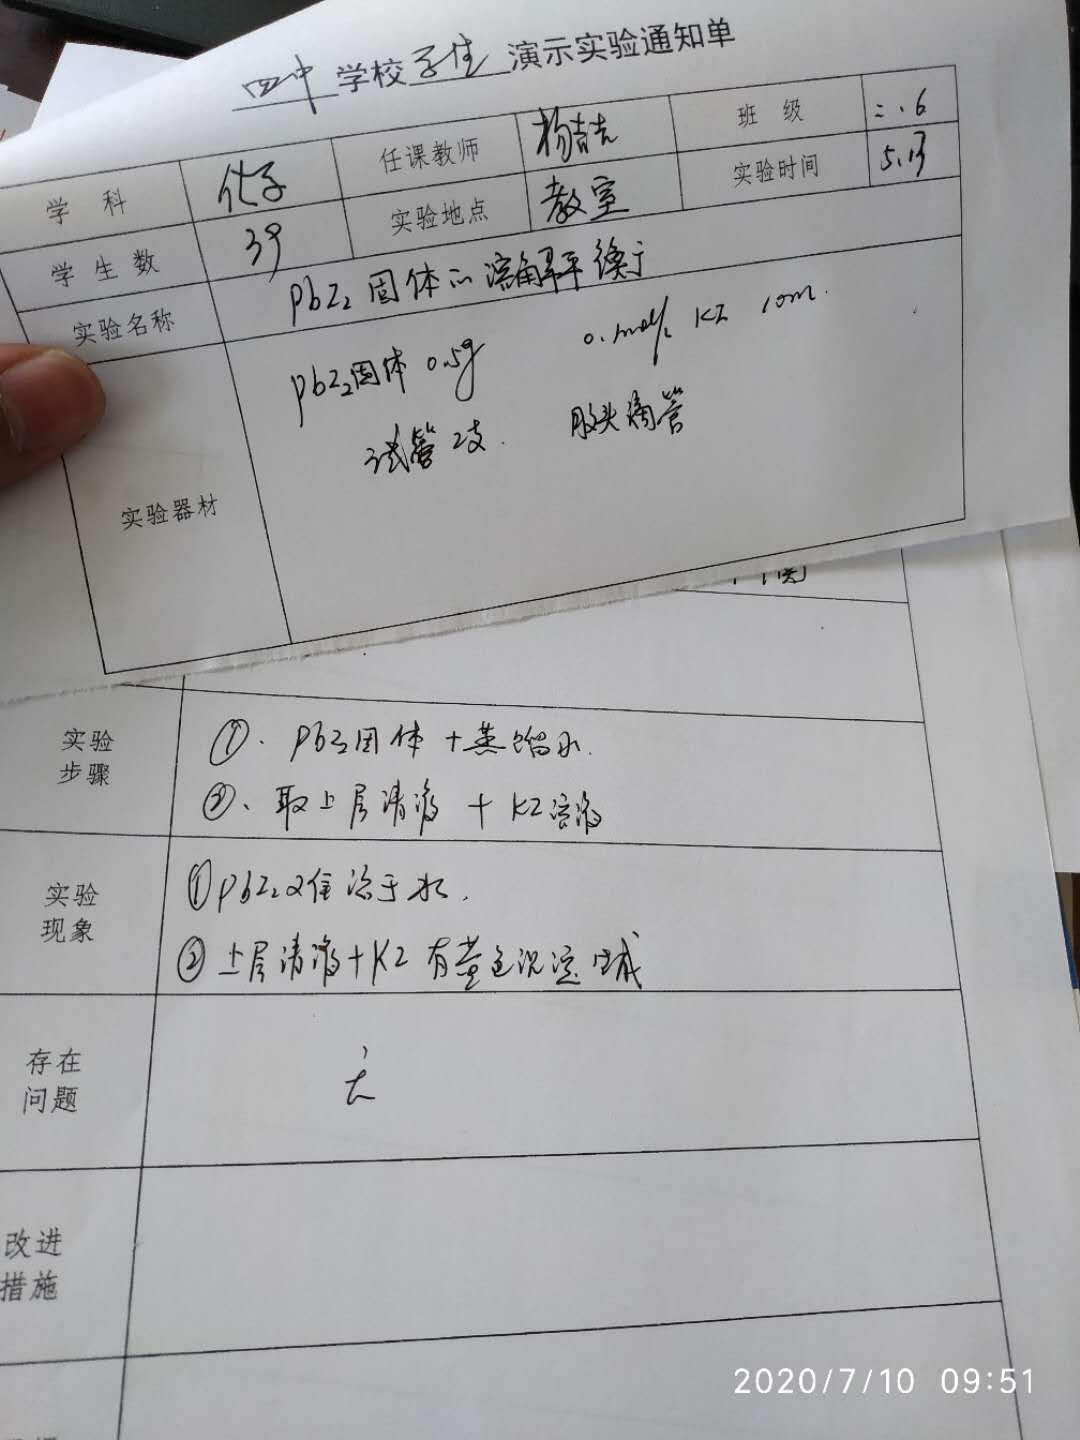 四中 学校 学生 演示实验通知单
学科 化学 任课教师 杨吉吉 班级 二.6
学生数 39 实验地点 教室 实验时间 5.13
实验名称 PbI₂固体的溶解平衡
实验器材 PbI₂固体 0.5g 0.1mol/L KI 10ml.
试管2支. 胶头滴管
实验步骤 ①、PbI₂固体+蒸馏水.
②、取上层清液 + KI溶液
实验现象 ①PbI₂ 难溶于水.
②上层清液+KI 有黄色沉淀生成
存在问题 无
改进措施
2020/7/10 09:51